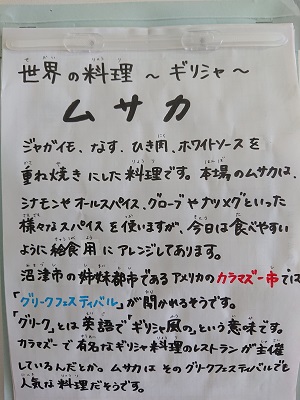 世界の料理 ～ ギリシャ ～
ムサカ
ジャガイモ、なす、ひき肉、ホワイトソースを
重ね焼きにした料理です。本場のムサカは、
シナモンやオールスパイス、グローブやナツメグといった
様々なスパイスを使いますが、今日は食べやすい
ように給食用にアレンジしてあります。
沼津市の姉妹都市であるアメリカのカラマズー市では
「グリークフェスティバル」が開かれるそうです。
「グリーク」とは英語で「ギリシャ風の」という意味です。
カラマズーで有名なギリシャ料理のレストランが主催
しているんだとか。ムサカはそのグリークフェスティバルでも
人気な料理だそうです。